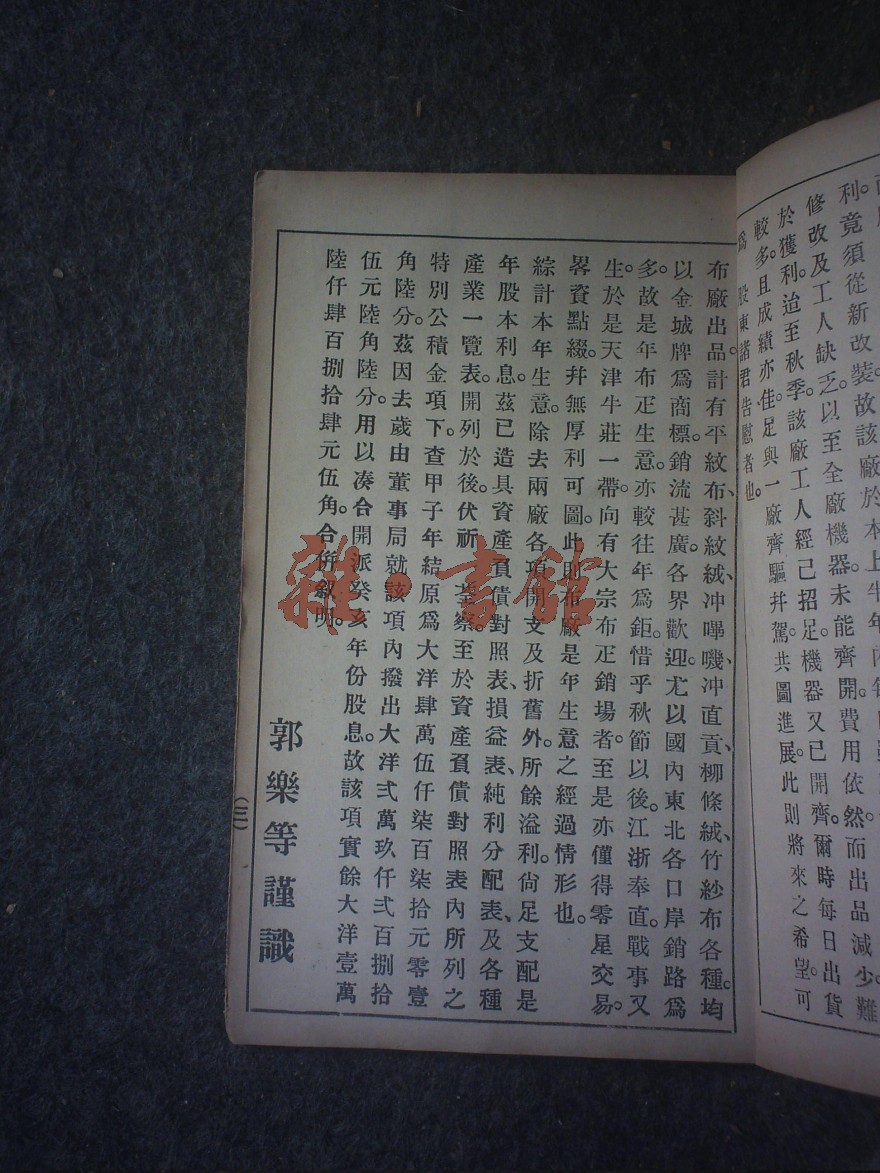 利。竟須從新改裝。故該廠於本上半年
修改及工人缺乏。以至全廠機器。未能齊開。費用依然。而出品減少。難
於獲利。迨至秋季。該廠工人經已招足。機器又已開齊。爾時每日出貨
較多。且成績亦佳。足與一廠齊驅并駕。共圖進展。此則將來之希望。可
爲 股東諸君告慰者也。
布廠出品。計有平紋布、斜紋絨、冲嗶嘰、冲直貢、柳條絨、竹紗布各種。均
以金城牌爲商標。銷流甚廣。各界歡迎。尤以國內東北各口岸銷路爲
多。故是年布疋生意。亦較往年爲鉅。惜乎秋節以後。江浙奉直。戰事又
生。於是天津牛莊一帶。向有大宗布疋銷場者。至是亦僅得零星交易。
畧資點綴。幷無厚利可圖。此則布廠是年生意之經過情形也。
綜計本年生意。除去兩廠各項開支及折舊外。所餘溢利。尙足支配是
年股本利息。茲已造具資產負債對照表、損益表、純利分配表、及各種
產業一覽表。開列於後。伏祈 荃察。至於資產負債對照表內所列之
特別公積金項下。查甲子年結原爲大洋肆萬伍仟柒百柒拾元零壹
角陸分。茲因去歲由董事局就該項內撥出大洋弍萬玖仟弍百捌拾
伍元陸角陸分。用以凑合開派癸亥年份股息。故該項實餘大洋壹萬
陸仟肆百捌拾肆元伍角。合倂叙明。
郭樂等謹識
（三）
雜·書館